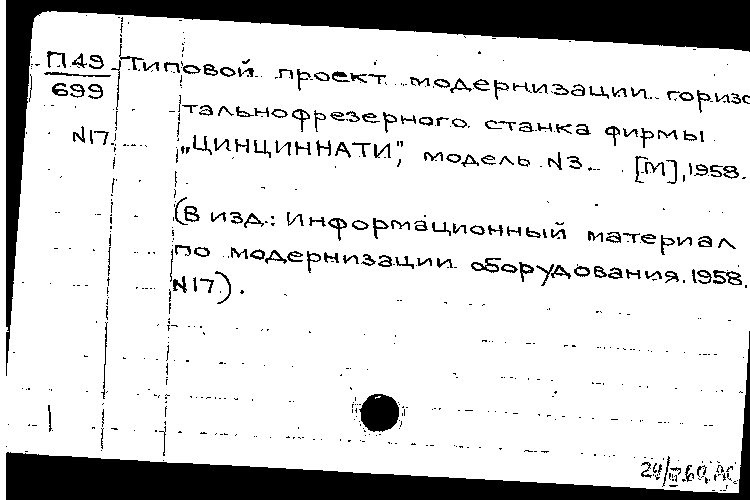 П49 Типовой проект модернизации горизо
699
тальнофрезерного станка фирмы
N17. „ЦИНЦИННАТИ", модель N3. [М], 1958.
(В изд.: Информационный материал
по модернизации оборудования. 1958.
N17).